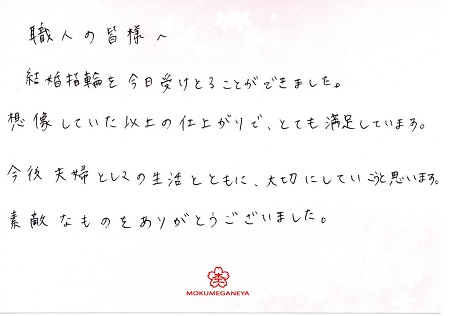 職人の皆様へ
結婚指輪を今日受けとることができました。
想像していた以上の仕上がりで、とても満足しています。
今後夫婦としての生活とともに、大切にしていこうと思います。
素敵なものをありがとうございました。
MOKUMEGANEYA